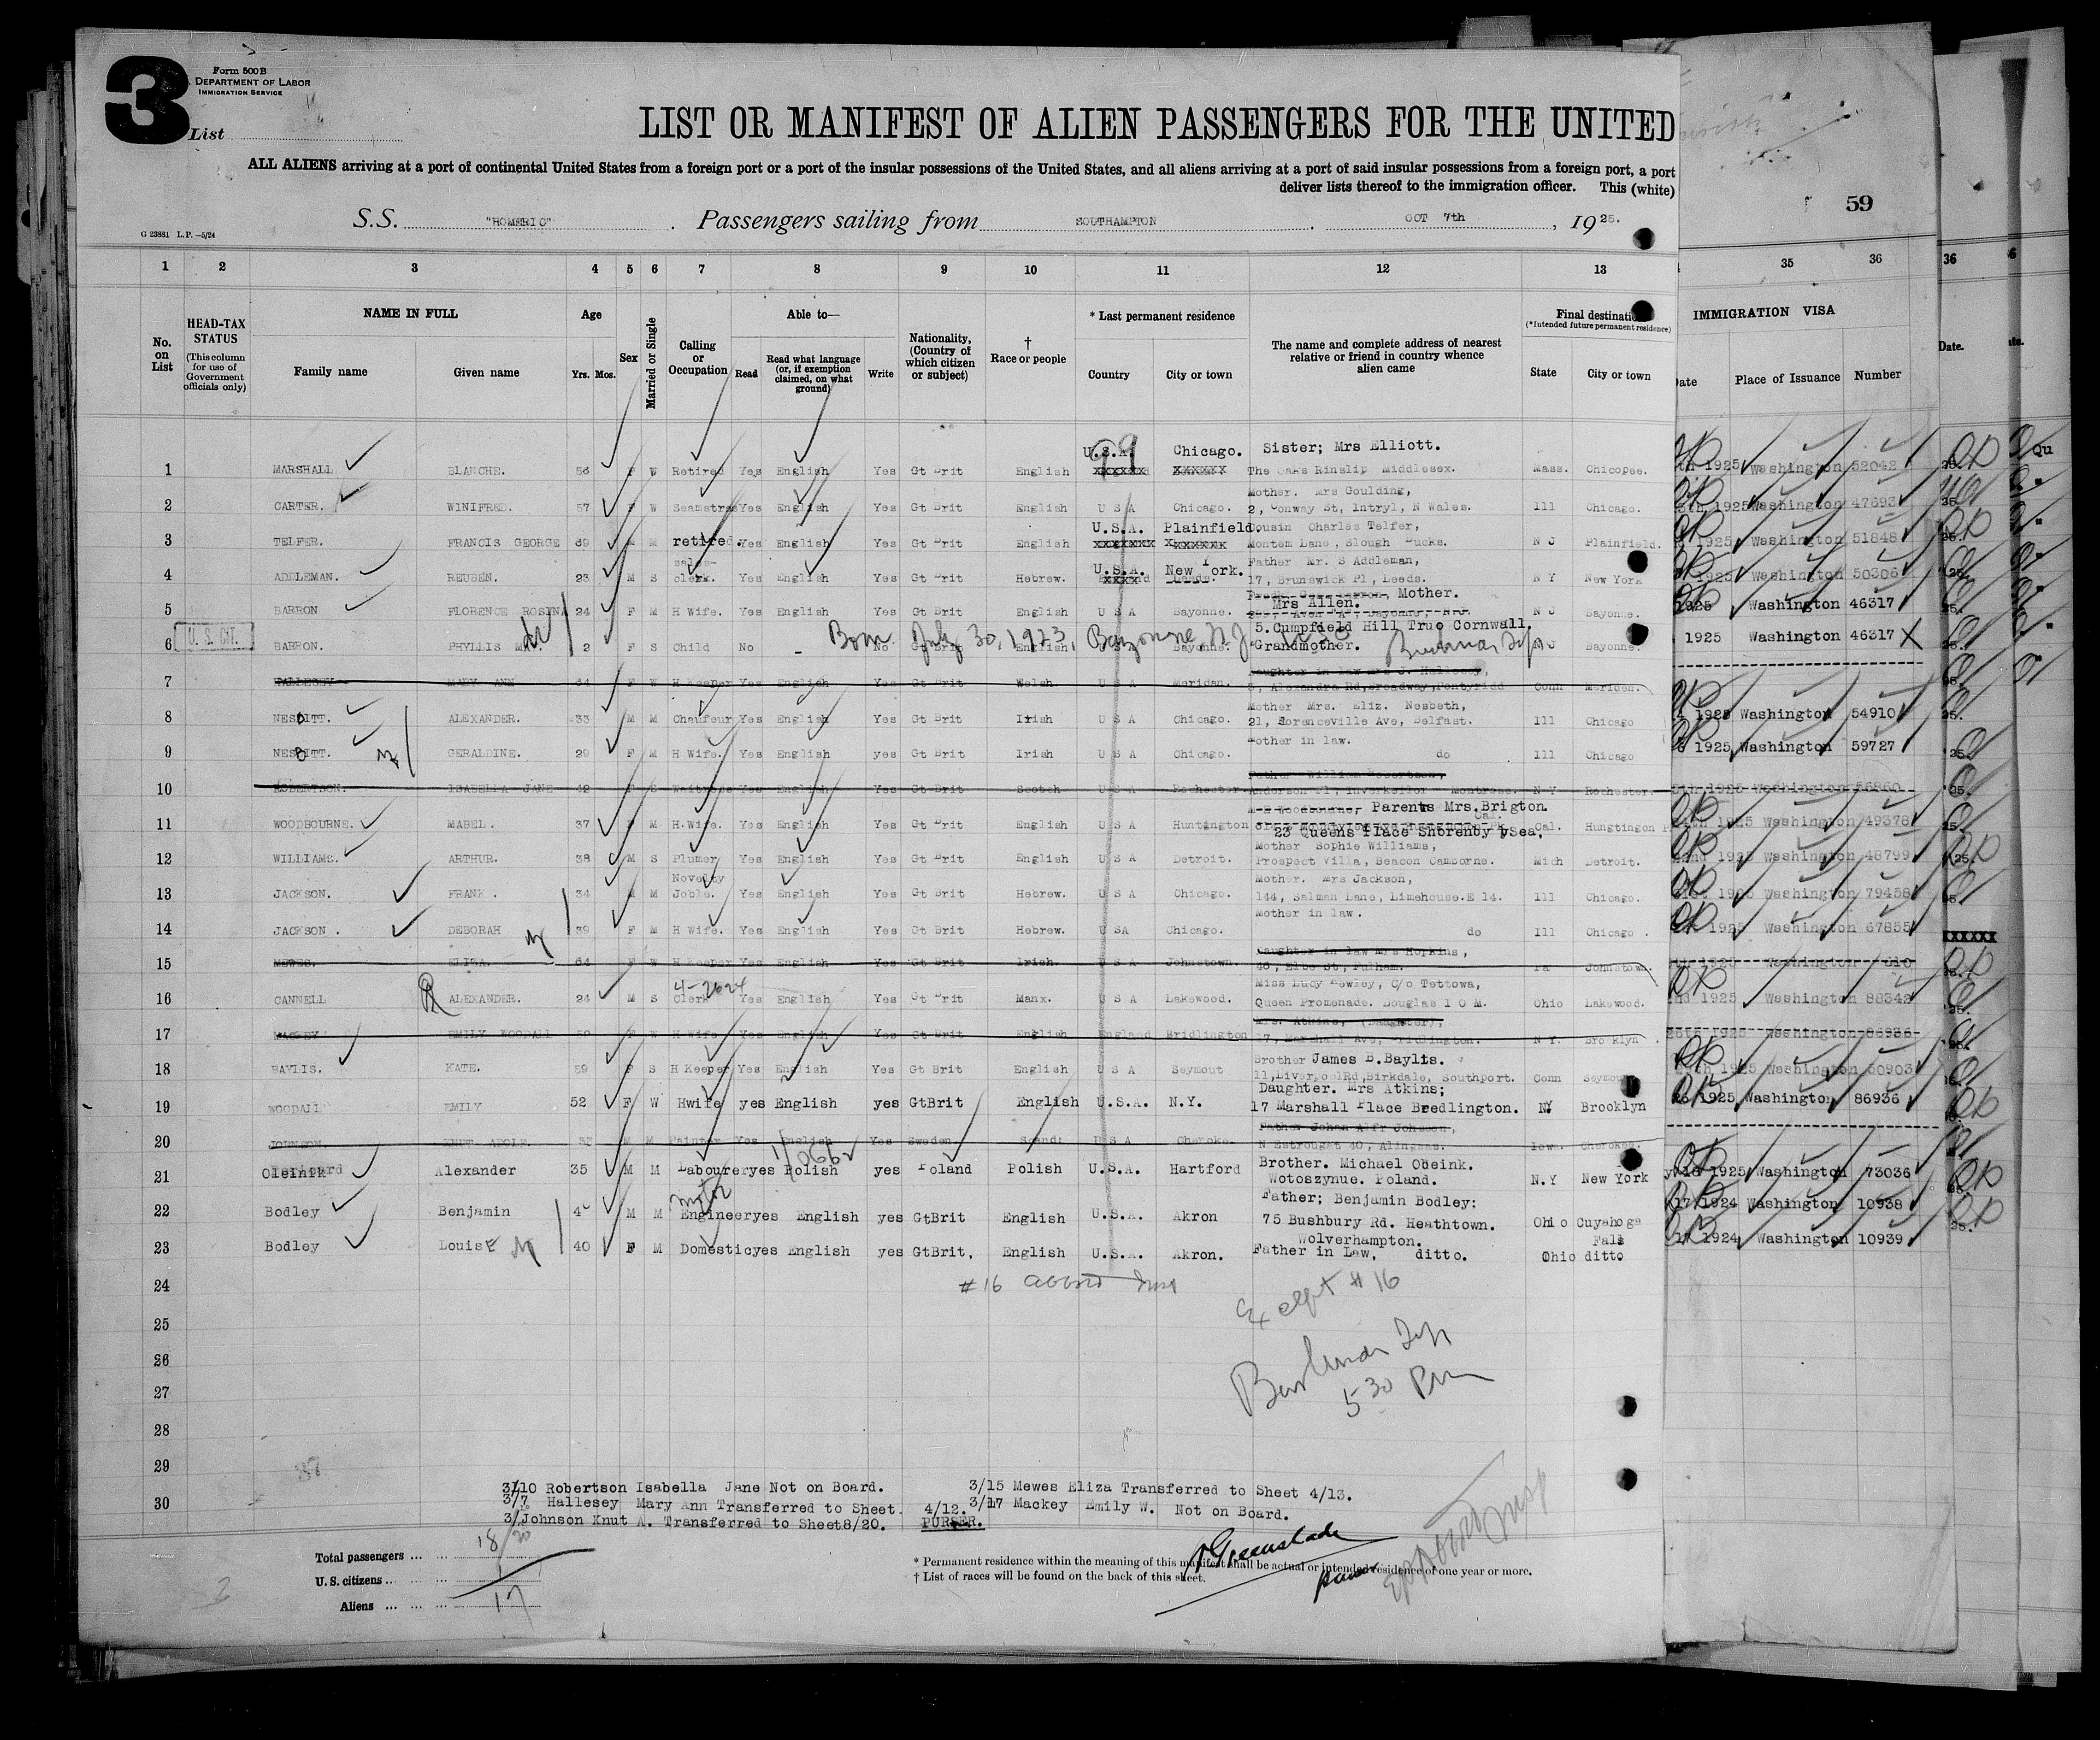 3
Form 500B
DEPARTMENT OF LABOR
IMMIGRATION SERVICE
List
LIST OR MANIFEST OF ALIEN PASSENGERS FOR THE UNITED
ALL ALIENS arriving at a port of continental United States from a foreign port or a port of the insular possessions of the United States, and all aliens arriving at a port of said insular possessions from a foreign port, a port
deliver lists thereof to the immigration officer. This (white)
59
S.S. "HOMERIC" . Passengers sailing from SOUTHAMPTON . OCT 7th , 1925.
G 23881 L.P.—5/24
1 2 3 4 5 6 7 8 9 10 11 12 13 35 36 36
No. on List
HEAD-TAX STATUS
(This column for use of Government officials only)
NAME IN FULL
Family name Given name
Age
Yrs. Mos.
Sex
Married or Single
Calling or Occupation
Able to—
Read
Read what language (or, if exemption claimed, on what ground)
Write
Nationality, (Country of which citizen or subject)
† Race or people
* Last permanent residence
Country City or town
The name and complete address of nearest relative or friend in country whence alien came
Final destination
(*Intended future permanent residence)
State City or town
IMMIGRATION VISA
Place of Issuance Number
Date.
U.S.A. Chicago. Sister; Mrs Elliott.
1 MARSHALL BLANCHE. 56 F W Retired Yes English Yes Gt Brit English The Oaks Rinslip Middlesex. Mass. Chicopee. 1925 Washington 52042
Mother. Mrs Goulding,
2 CARTER. WINIFRED. 57 F W Seamstres Yes English Yes Gt Brit English U S A Chicago. 2, Conway St, Intryl, N Wales. Ill Chicago. 1925 Washington 47693
U.S.A. Plainfield Cousin Charles Telfer,
3 TELFER. FRANCIS GEORGE 69 M M retired. Yes English Yes Gt Brit English Montem Lane, Slough Bucks. N J Plainfield. 1925 Washington 51848
sales-
U.S.A. New York. Father Mr. S Addleman,
4 ADDLEMAN. REUBEN. 23 M S clerk. Yes English Yes Gt Brit Hebrew. Leeds. 17, Brunswick Pl, Leeds. N Y New York 1925 Washington 50306
Mother.
Mrs Allen.
5 BARRON FLORENCE ROSINA 24 F M H Wife. Yes English Yes Gt Brit English U S A Bayonne. N J Bayonne. 1925 Washington 46317
5.Cumpfield Hill Truo Cornwall.
U. S. CIT.
Born July 30, 1923, Bayonne, N.J.
6 BARRON. PHYLLIS M. 2 F S Child No - No Gt Brit English U S A Bayonne. Grandmother. N J Bayonne. 1925 Washington 46317 X
Daughter in law Mrs J. Hallesey,
7 HALLESEY MARY ANN 64 F W H Keeper Yes English Yes Gt Brit Welsh U S A Meridan. 8, Alexandra Rd, Broadway, Pontyridd Conn Meriden.
Mother Mrs. Eliz. Nesbeth,
8 NESBITT. ALEXANDER. 33 M M Chaufeur Yes English Yes Gt Brit Irish U S A Chicago. 21, Florenceville Ave, Belfast. Ill Chicago 1925 Washington 54910
Mother in law.
9 NESBITT. GERALDINE. 29 F M H Wife. Yes English yes Gt Brit Irish U S A Chicago. do Ill Chicago 1925 Washington 59727
Father William Robertson,
10 ROBERTSON. ISABELLA JANE 42 F S Waitress Yes English Yes Gt Brit Scotch U S A Rochester Anderson Pl, Inverkeilor Montrose. N Y Rochester. 1925 Washington 56860
Parents Mrs.Brigton.
11 WOODBOURNE. MABEL. 37 F M H.Wife. Yes English Yes Gt Brit English U S A Huntington Cal. Hungtingon 1925 Washington 49378
23 Queens Place Shorenby y Sea,
Mother Sophie Williams,
12 WILLIAMS. ARTHUR. 38 M S Plumer Yes English Yes Gt Brit English U S A Detroit. Prospect Villa, Beacon Camborne. Mich Detroit. 1925 Washington 48799
Novelty
Mother. Mrs Jackson,
13 JACKSON. FRANK. 34 M M Joble. Yes English Yes Gt Brit Hebrew. U S A Chicago. 144, Salman Lane, Limehouse.E 14. Ill Chicago. 1925 Washington 79458
Mother in law.
14 JACKSON. DEBORAH 39 F M H Wife. Yes English Yes Gt Brit Hebrew. U SA Chicago. do Ill Chicago. 1925 Washington 67855
Daughter in law Mrs Hopkins,
15 MEWES. ELIZA. 64 F W H Keeper Yes English Yes Gt Brit Irish. U S A Johnstown. 46, Elbe St, Fulham. Pa Johnstown.
4-2624
Miss Lucy Dewley, C/o Tettowa,
16 CANNELL ALEXANDER. 24 M S Clerk Yes English Yes Gt Brit Manx. U S A Lakewood. Queen Promenade. Douglas I O M. Ohio Lakewood. 1925 Washington 88342
Mrs. Atkins, (Daughter),
17 MACKEY EMILY WOODALL 59 F W H Wife Yes English Yes Gt Brit English England Bridlington 17, Marshall Ave, Bridlington. N Y. Bro klyn. 1925 Washington 86936
Brother James B.Baylis.
18 BAYLIS. KATE. 59 F S H Keeper Yes English Yes Gt Brit English U S A Seymout 11,LiverpoolRd,Birkdale, Southport. Conn Seymour 1925 Washington 50903
Daughter. Mrs Atkins;
19 WOODALL EMILY 52 F W Hwife yes English yes GtBrit English U.S.A. N.Y. 17 Marshall Place Bredlington. N.Y Brooklyn 1925 Washington 86936
Father Johan Alfr Johnson,
20 JOHNSON. KNUT ADOLF. M M Painter Yes English Yes Sweden Scand: U S A Cheroke N Estrougat 40, Alingsas. Iowa. Cherokee.
21 Oleinik Alexander 35 M M Laboureryes Polish yes Poland Polish U.S.A. Hartford Brother. Michael Obeink. N.Y New York 1925 Washington 73036
Wotoszynue. Poland.
motor
Father; Benjamin Bodley:
22 Bodley Benjamin M M Engineeryes English yes GtBrit English U.S.A. Akron 75 Bushbury Rd. Heathtown. Ohio Cuyahoga 17 1924 Washington 10938
Wolverhampton. Falls
23 Bodley Louise 40 F M Domesticyes English yes GtBrit, English U.S.A. Akron. Father in Law, ditto. Ohio ditto 17 1924 Washington 10939
24
#16
Except #16
25
26
27
5 30 Pm
28
29
30
3/10 Robertson Isabella Jane Not on Board. 3/15 Mewes Eliza Transferred to Sheet 4/13.
3/7 Hallesey Mary Ann Transferred to Sheet. 4/12. 3/17 Mackey Emily W. Not on Board.
3/Johnson Knut A. Transferred to Sheet8/20. PURSER.
Total passengers 18/20
U. S. citizens 1
Aliens 17
Greenslade
purser
* Permanent residence within the meaning of this manifest shall be actual or intended residence of one year or more.
† List of races will be found on the back of this sheet.